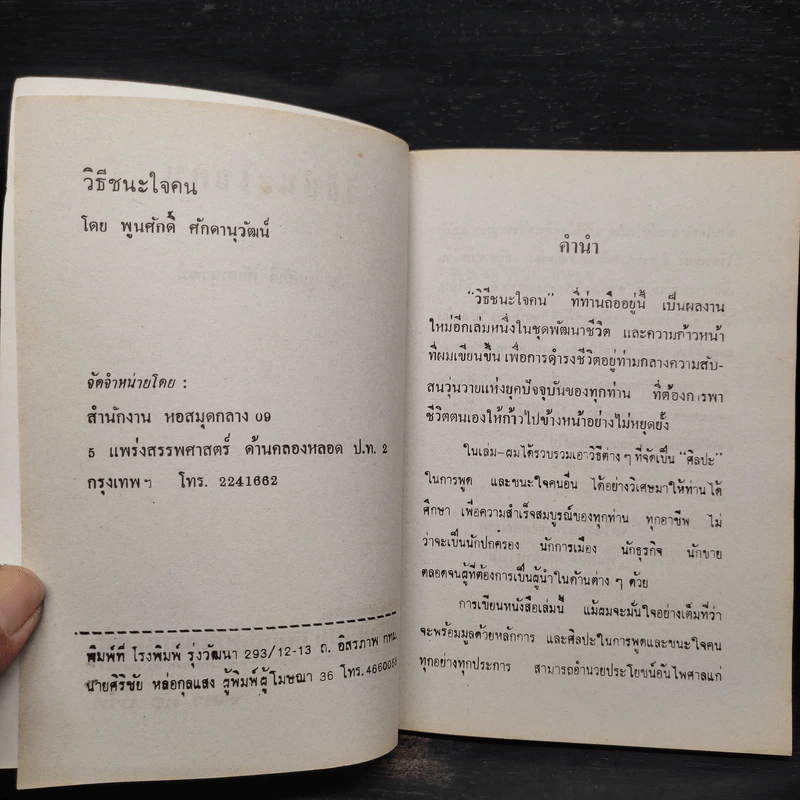 วิธีชนะใจคน
โดย พูนศักดิ์ ศักดานุวัฒน์
จัดจำหน่ายโดย :
สำนักงาน หอสมุดกลาง 09
5 แพร่งสรรพศาสตร์ ด้านคลองหลอด ป.ท. 2
กรุงเทพฯ โทร. 2241662
พิมพ์ที่ โรงพิมพ์ รุ่งวัฒนา 293/12-13 ถ. อิสรภาพ กทม.
นายศิริชัย หล่อกุลแสง ผู้พิมพ์ผู้โฆษณา 36 โทร.4660058
คำนำ
"วิธีชนะใจคน" ที่ท่านถืออยู่นี้ เป็นผลงาน
ใหม่อีกเล่มหนึ่งในชุดพัฒนาชีวิต และความก้าวหน้า
ที่ผมเขียนขึ้น เพื่อการดำรงชีวิตอยู่ท่ามกลางความสับ-
สนวุ่นวายแห่งยุคปัจจุบันของทุกท่าน ที่ต้องการพา
ชีวิตตนเองให้ก้าวไปข้างหน้าอย่างไม่หยุดยั้ง
ในเล่ม-ผมได้รวบรวมเอาวิธีต่าง ๆ ที่จัดเป็น "ศิลปะ"
ในการพูด และชนะใจคนอื่น ได้อย่างวิเศษมาให้ท่านได้
ศึกษา เพื่อความสำเร็จสมบูรณ์ของทุกท่าน ทุกอาชีพ ไม่
ว่าจะเป็นนักปกครอง นักการเมือง นักธุรกิจ นักขาย
ตลอดจนผู้ที่ต้องการเป็นผู้นำในด้านต่าง ๆ ด้วย
การเขียนหนังสือเล่มนี้ แม้ผมจะมั่นใจอย่างเต็มที่ว่า
จะพร้อมมูลด้วยหลักการ และศิลปะในการพูดและชนะใจคน
ทุกอย่างทุกประการ สามารถอำนวยประโยชน์อันไพศาลแก่